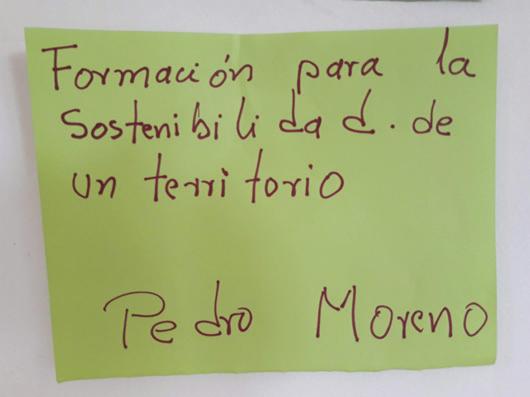 Formación para la
Sostenibilidad. de
un territorio
Pedro Moreno